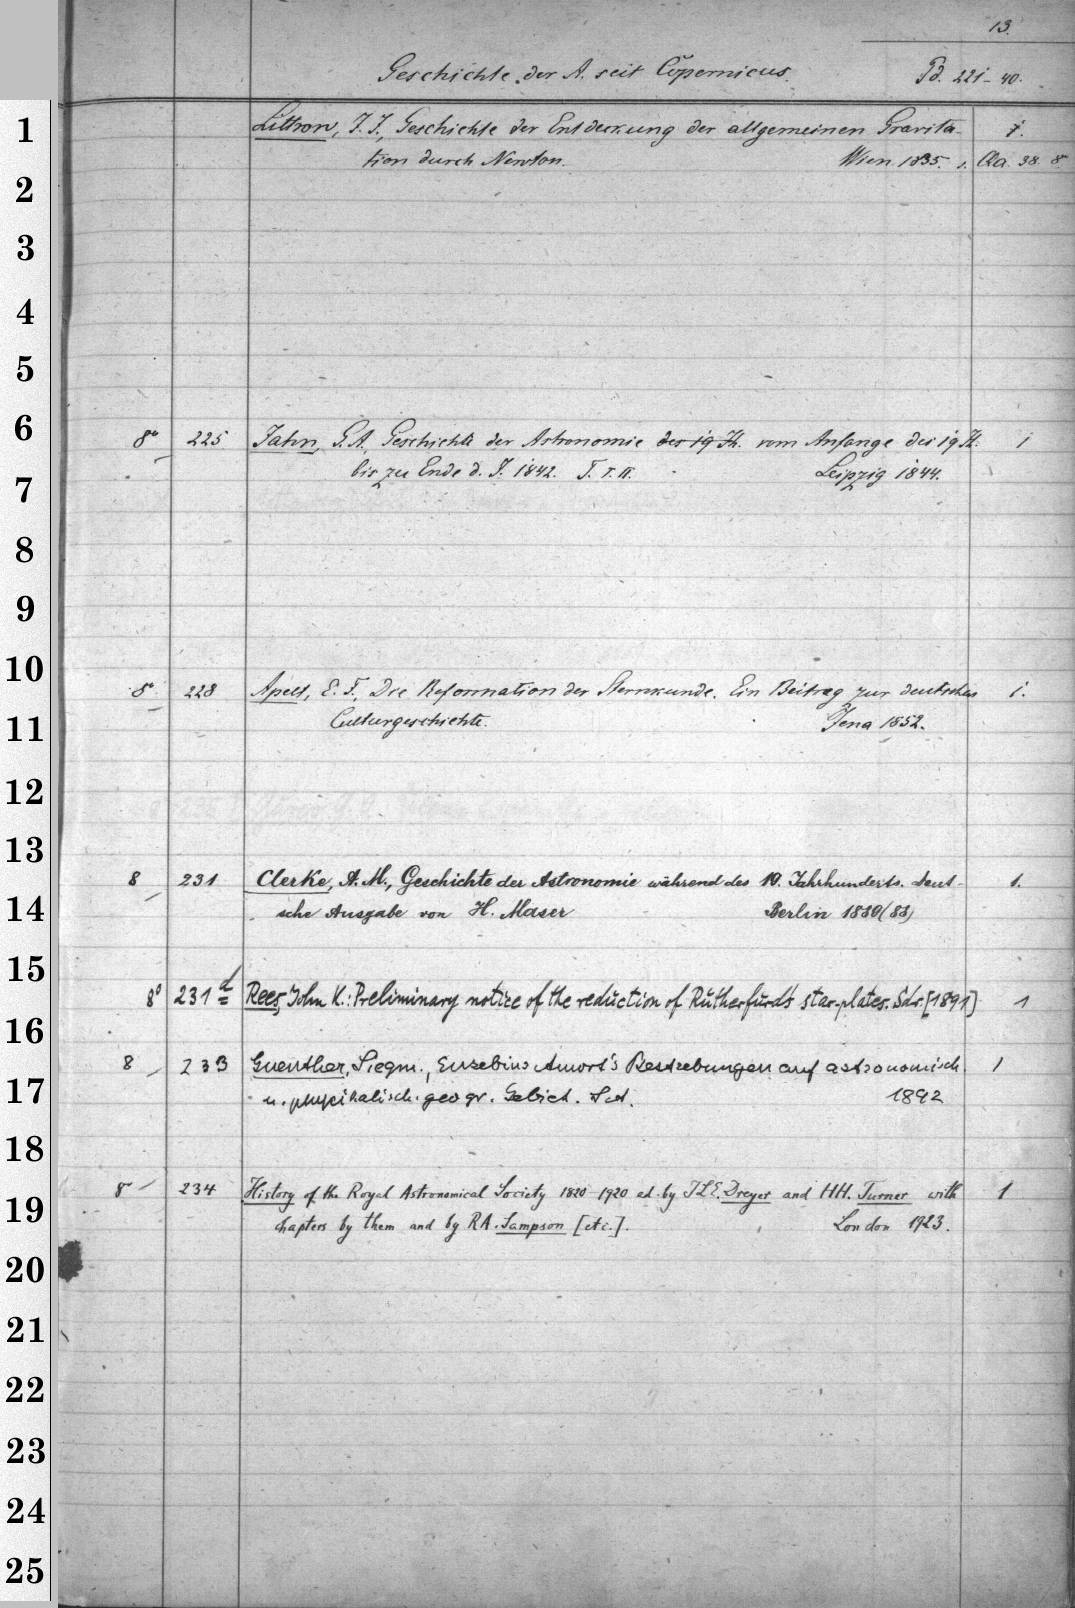 13.
Geschichte der A. seit Copernicus. Pd. 221-40.
1
Littrow, J. J., Geschichte der Entdeckung der allgemeinen Gravita- 1.
tion durch Newton. Wien 1835. 1. Qa. 38. 8°
2
3
4
5
6
8° 225 Jahn, G. A., Geschichte der Astronomie des 19 Jh. vom Anfange des 19 Jh. 1
bis zu Ende d. J. 1842. T. I. II. Leipzig 1844.
7
8
9
10
8° 228 Apelt, E. F., Die Reformation der Sternkunde. Ein Beitrag zur deutschen 1.
11
Culturgeschichte. Jena 1852.
12
13
8 231 Clerke, A. M., Geschichte der Astronomie während des 19. Jahrhunderts. Deut- 1.
14
sche Ausgabe von H. Maser Berlin
15
8° 231 d Rees, John K.: Preliminary notice of the reduction of Rutherfurd's star-plates. Sdr. [1891] 1
16
8 233 Guenther, Siegm., Eusebius Amort's Bestrebungen auf astronomisch 1
17
u. physikalisch. geogr. Gebiet. S. A. 1892
18
8° 234 History of the Royal Astronomical Society 1820-1920 ed. by J L E. Dreyer and H H. Turner with 1
19
chapters by them and by R A. Sampson [etc.]. London 1923.
20
21
22
23
24
25